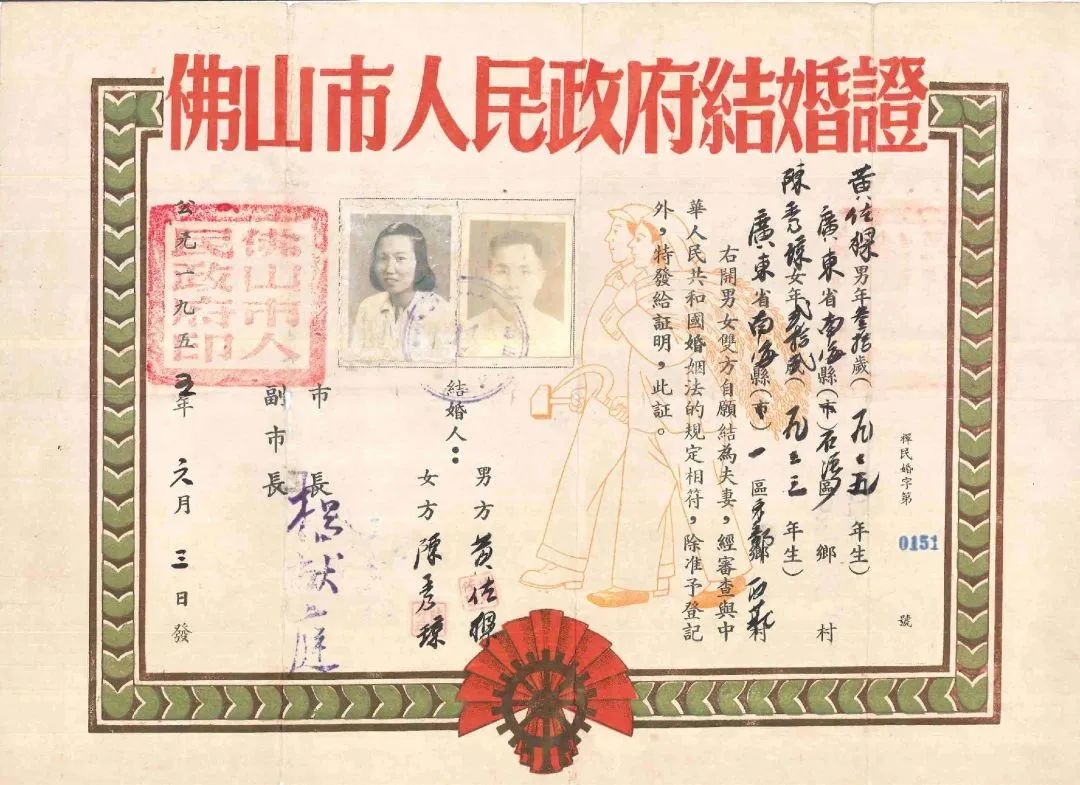 佛山市人民政府結婚證
禪民婚字第 0151 號
黃佐男年叁拾歲(一九二五年生)
廣東省南海縣(市)區 鄉 村
陳秀瓊女年贰拾贰歲(一九三三年生)
廣東省南海縣(市)一區鄉西村
右開男女雙方自願結為夫妻,經審查與中
華人民共和國婚姻法的規定相符,除准予登記
外,特發給証明,此証。
結婚人:
男方 黃佐
女方 陳秀瓊
市長
副市長
楊献庭
公元一九五五年六月三日發
佛山市人民政府印